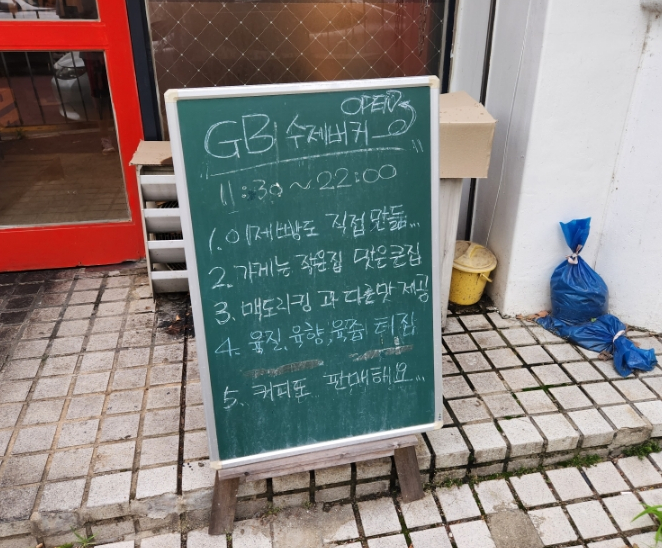 OPEN
GB 수제버거
11:30 ~ 22:00
1. 이제빵도 직접 만듦...
2. 가게는 작은집 맛은큰집
3. 맥도리킹 과 다른맛 제공
4. 육질, 육향, 육즙, 퇴집
5. 커피도 판매해요...